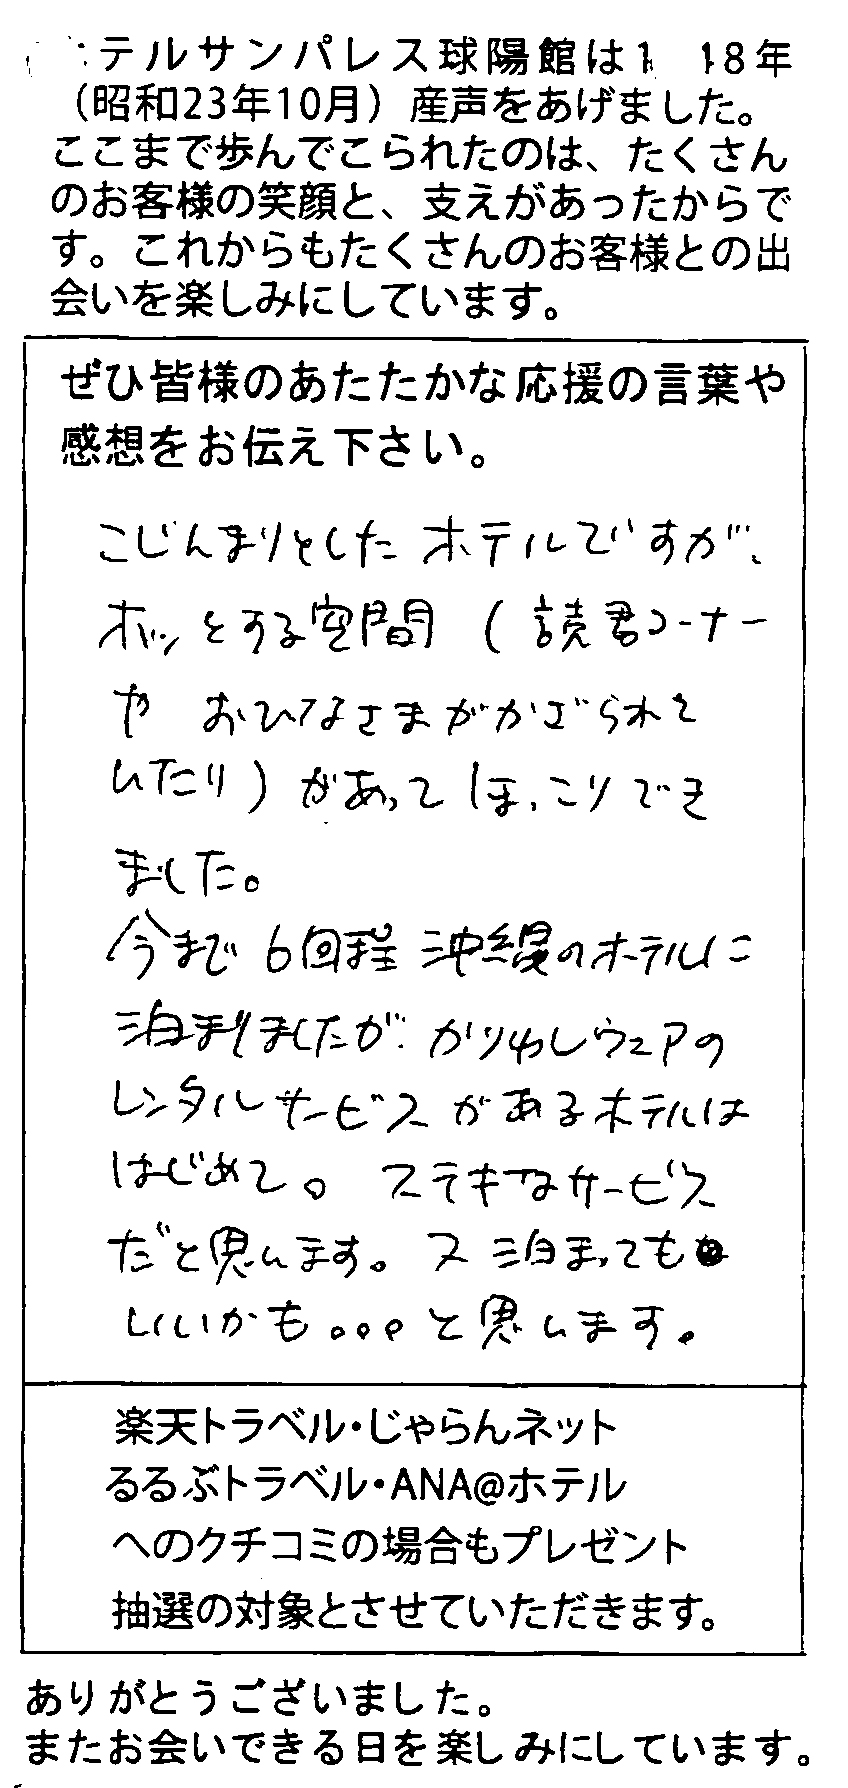 テルサンパレス球陽館は1 18年
（昭和23年10月）産声をあげました。
ここまで歩んでこられたのは、たくさん
のお客様の笑顔と、支えがあったからで
す。これからもたくさんのお客様との出
会いを楽しみにしています。
ぜひ皆様のあたたかな応援の言葉や
感想をお伝え下さい。
こじんまりとしたホテルですが、
ホッとする空間（読書コーナー
や おひなさまがかざられて
いたり）があってほっこりでき
ました。
今まで6回程沖縄のホテルに
泊まりましたが、かりゆしウェアの
レンタルサービスがあるホテルは
はじめて。ステキなサービス
だと思います。又泊まっても
いいかも。。。と思います。
楽天トラベル・じゃらんネット
るるぶトラベル・ANA@ホテル
へのクチコミの場合もプレゼント
抽選の対象とさせていただきます。
ありがとうございました。
またお会いできる日を楽しみにしています。